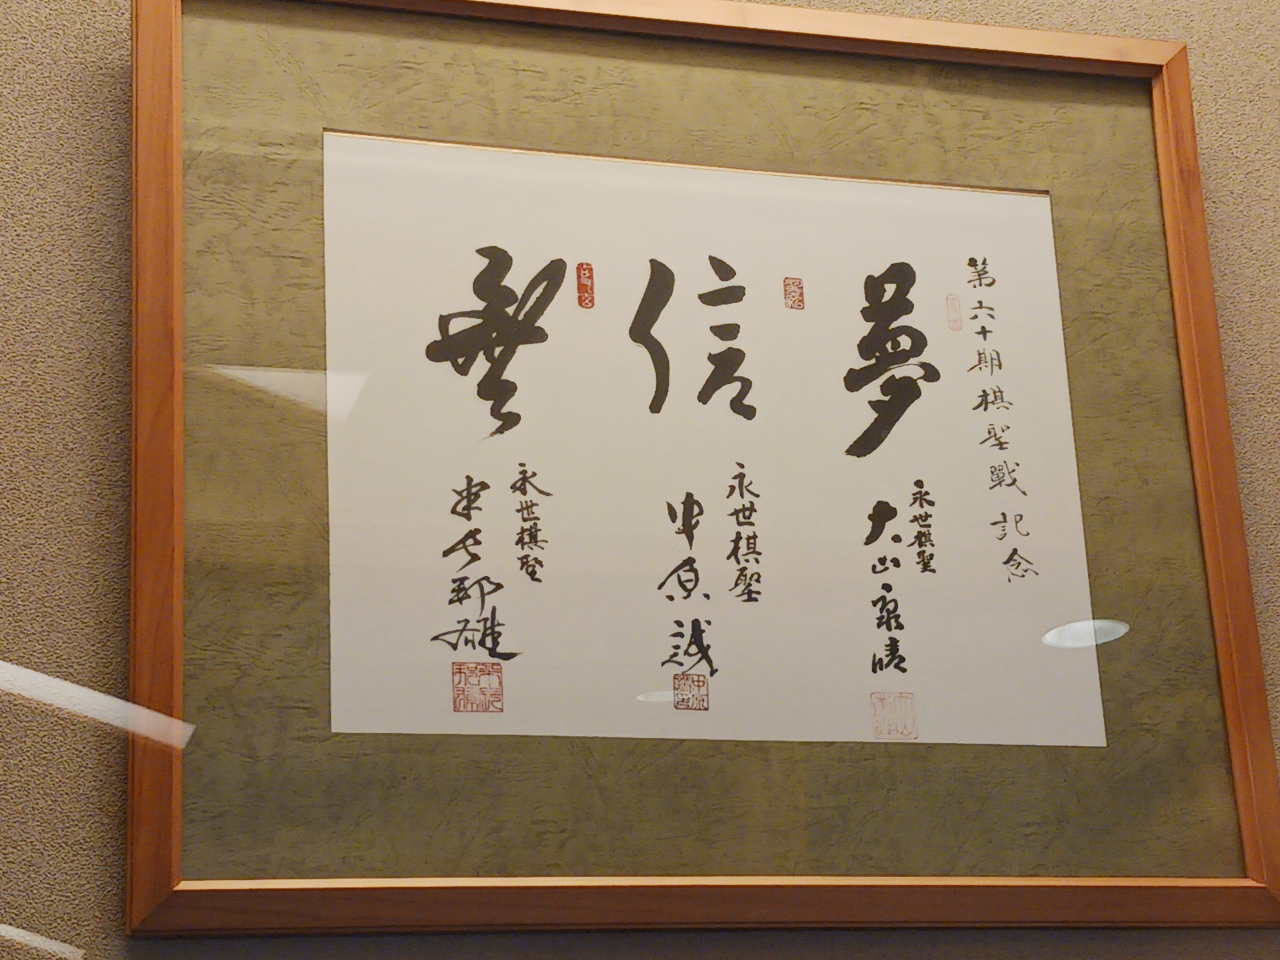 第六十期棋聖戰記念
夢
永世棋聖
大山康晴
信
永世棋聖
中原誠
永世棋聖
米長邦雄